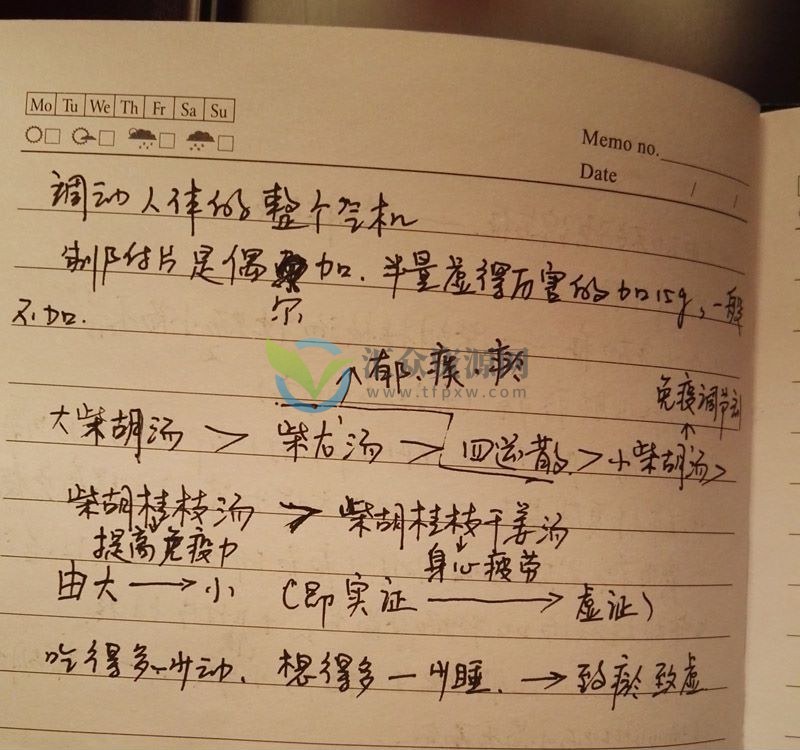 Mo Tu We Th Fr Sa Su
Memo no.
Date / /
调动人体的整个气机
制附片是偶尔加.半量虚得厉害的加15g,一般
不加.
郁.痰.瘀
www.tfpxw.com
免疫调节剂
大柴胡汤 > 柴龙汤 > 四逆散 > 小柴胡汤>
柴胡桂枝汤 > 柴胡桂枝干姜汤
提高免疫力 身心疲劳
由大→小 (即实证→虚证)
吃得多—少动. 想得多—少睡. →致瘀致虚